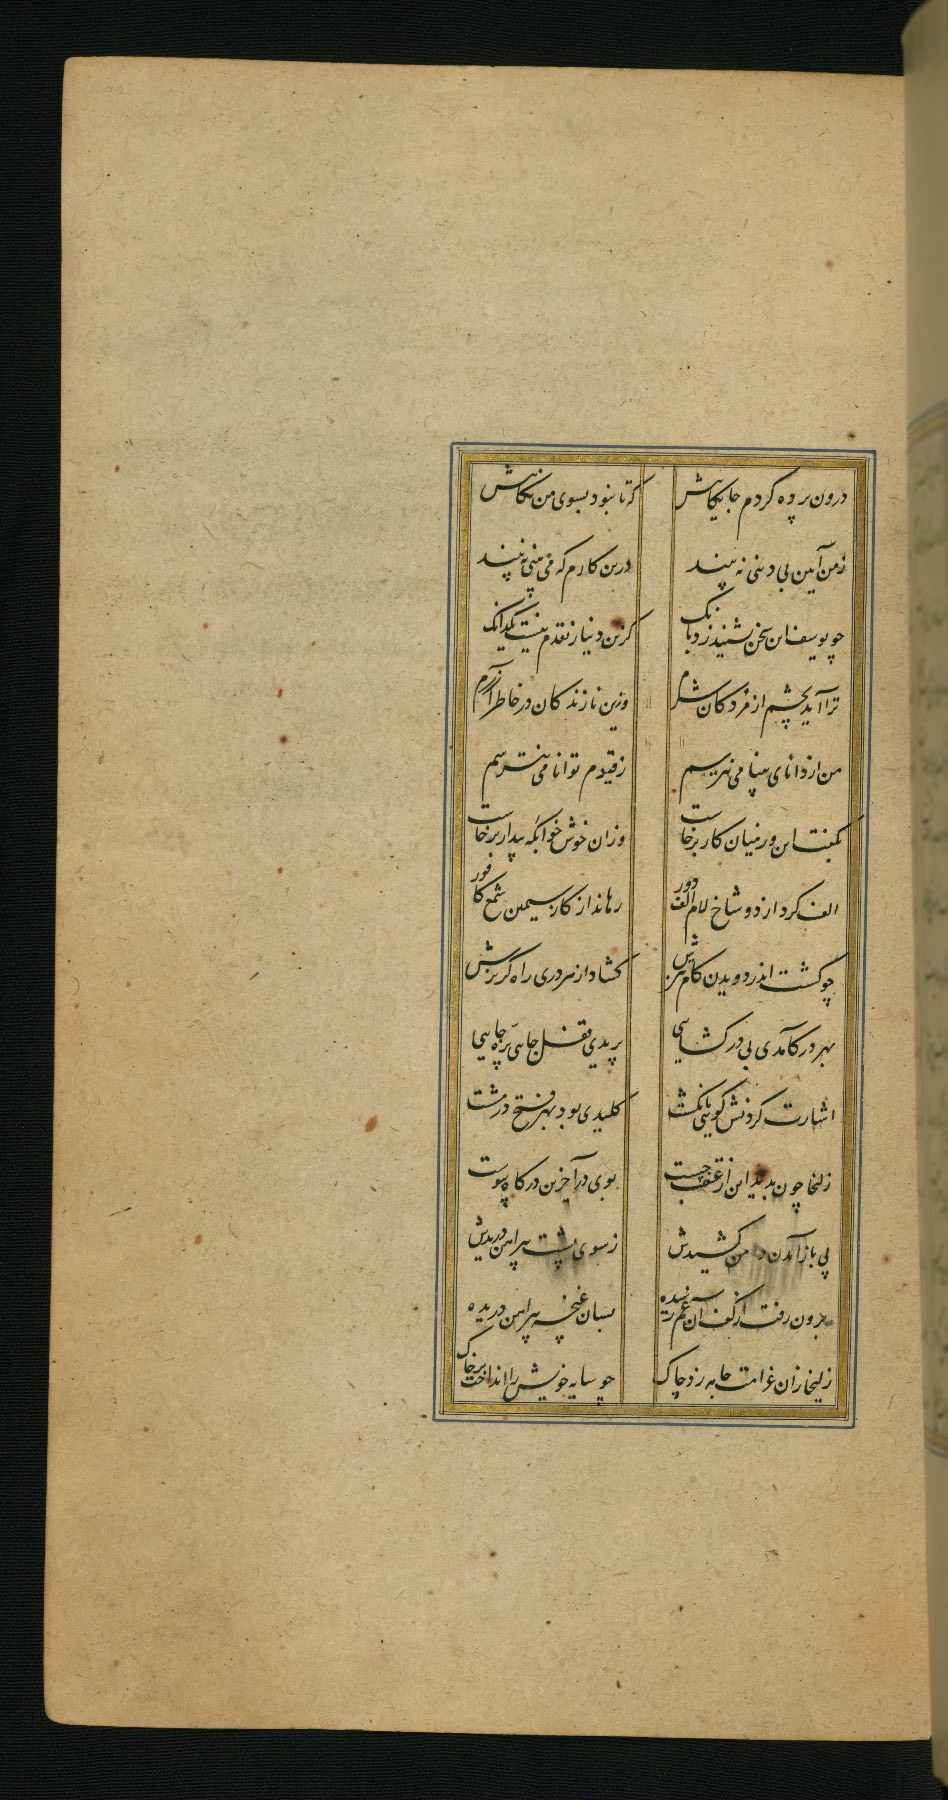 درون پرده کردم جایگاهش که تا نبود بسوی من نگاهش
زمن آیین بی دینی نه بیند درین کارم که می بینی نه بیند
چو یوسف این سخن بشنید زد بانک کزین دینار نقدم نیست یکدانک
ترا آید بچشم از مردکان شرم وزین نازندکان در خاطر آزرم
من از دانای بینا می نترسم ز قیوم توانا می نترسم
بگفت این و ز میان کار برخاست وزان خوش خوابکه بیدار برخاست
الف کرد از دو شاخ لام الف دور رهاند از کاز سیمین شمع کافور
چو کشت اندر دویدن کام تیزش کشاد از هر دری راه کریزش
بهر در کآمدی بی در کشایی پریدی قفل جایی پره جایی
اشارت کردنش کویی بانکشت کلیدی بود بهر فتح در مشت
زلیخا چون بدید این از عقب جست بوی در آخرین درکاه پیوست
پی باز آمدن دامن کشیدش ز سوی پشت پیراهن دریدش
برون رفت از کف آن غم رسیده بسان غنچه پیراهن دریده
زلیخا زان غرامت جامه زد چاک چو سایه خویش را انداخت بر خاک